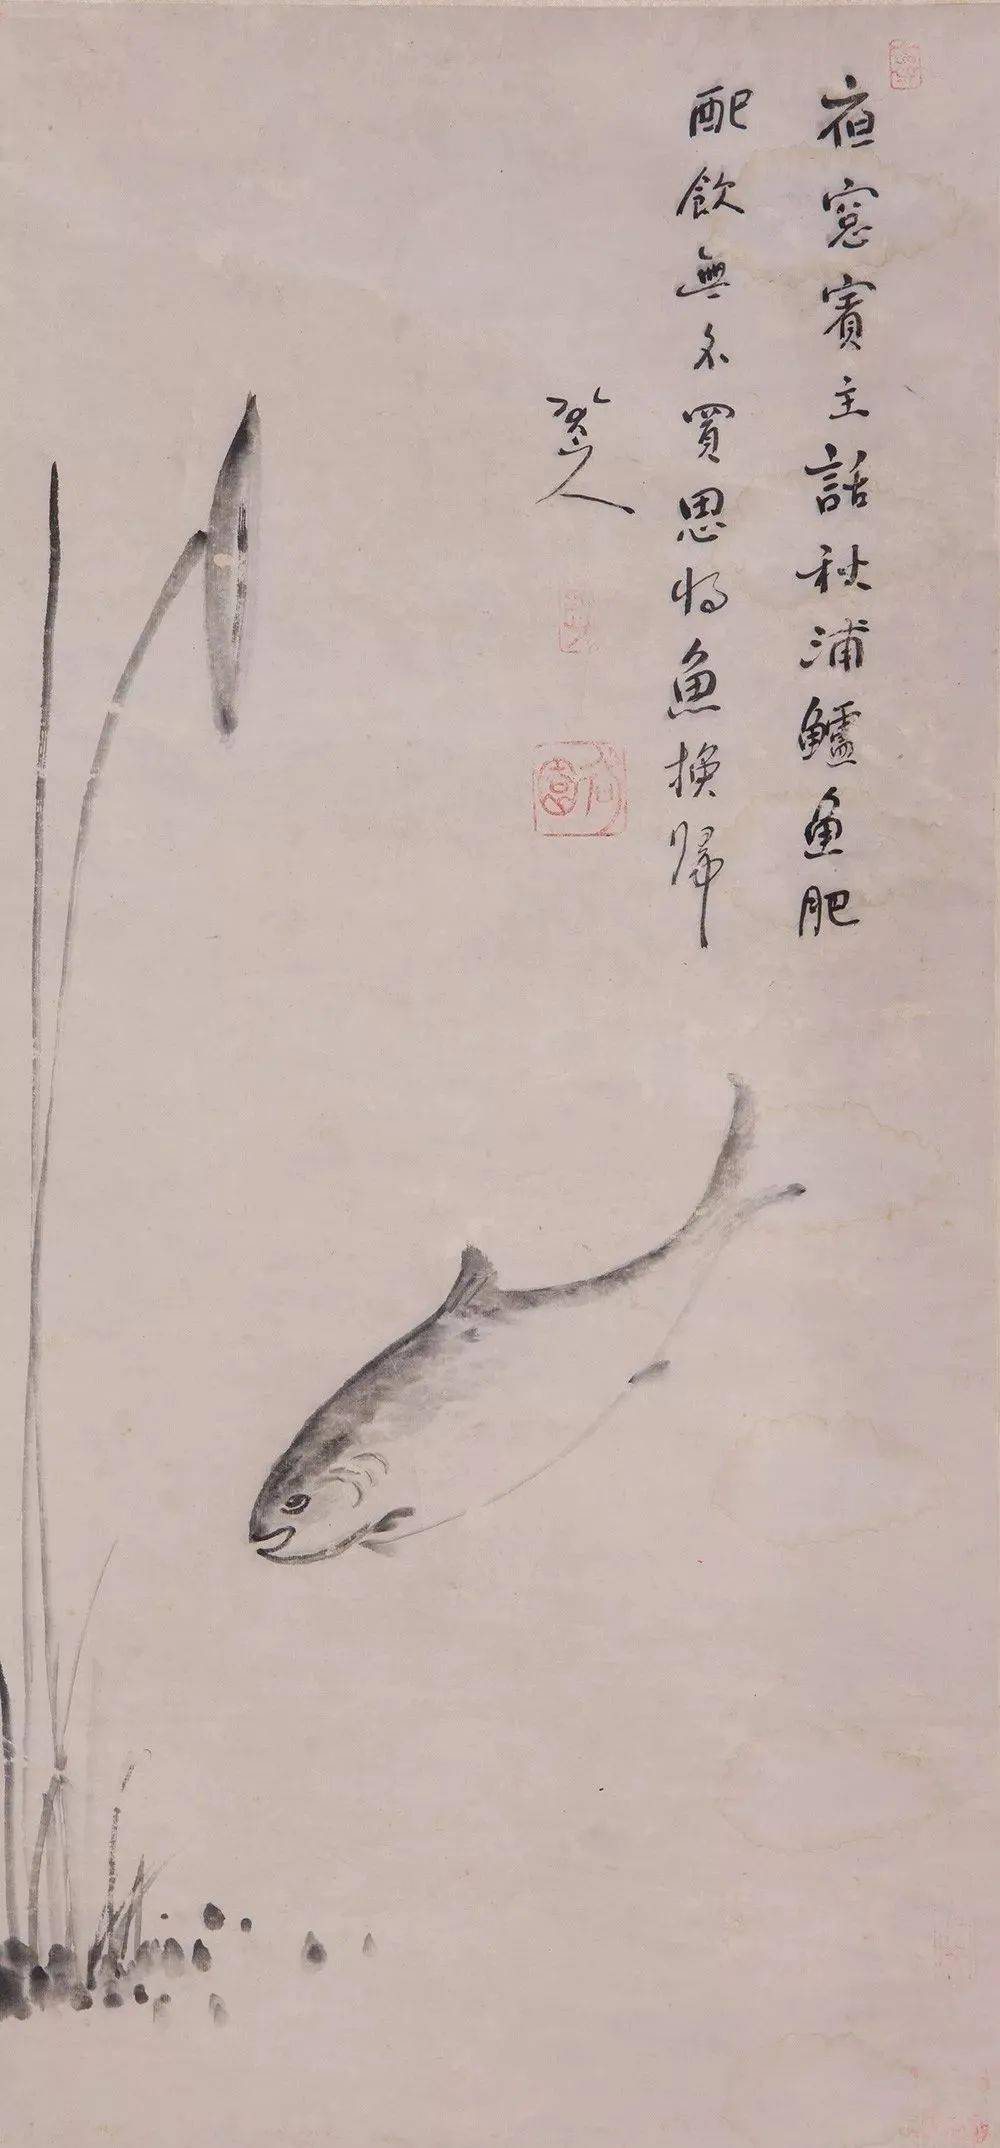 亱窓賓主話秋浦鱸魚肥
配飲無買思將魚換歸
八大山人
何園